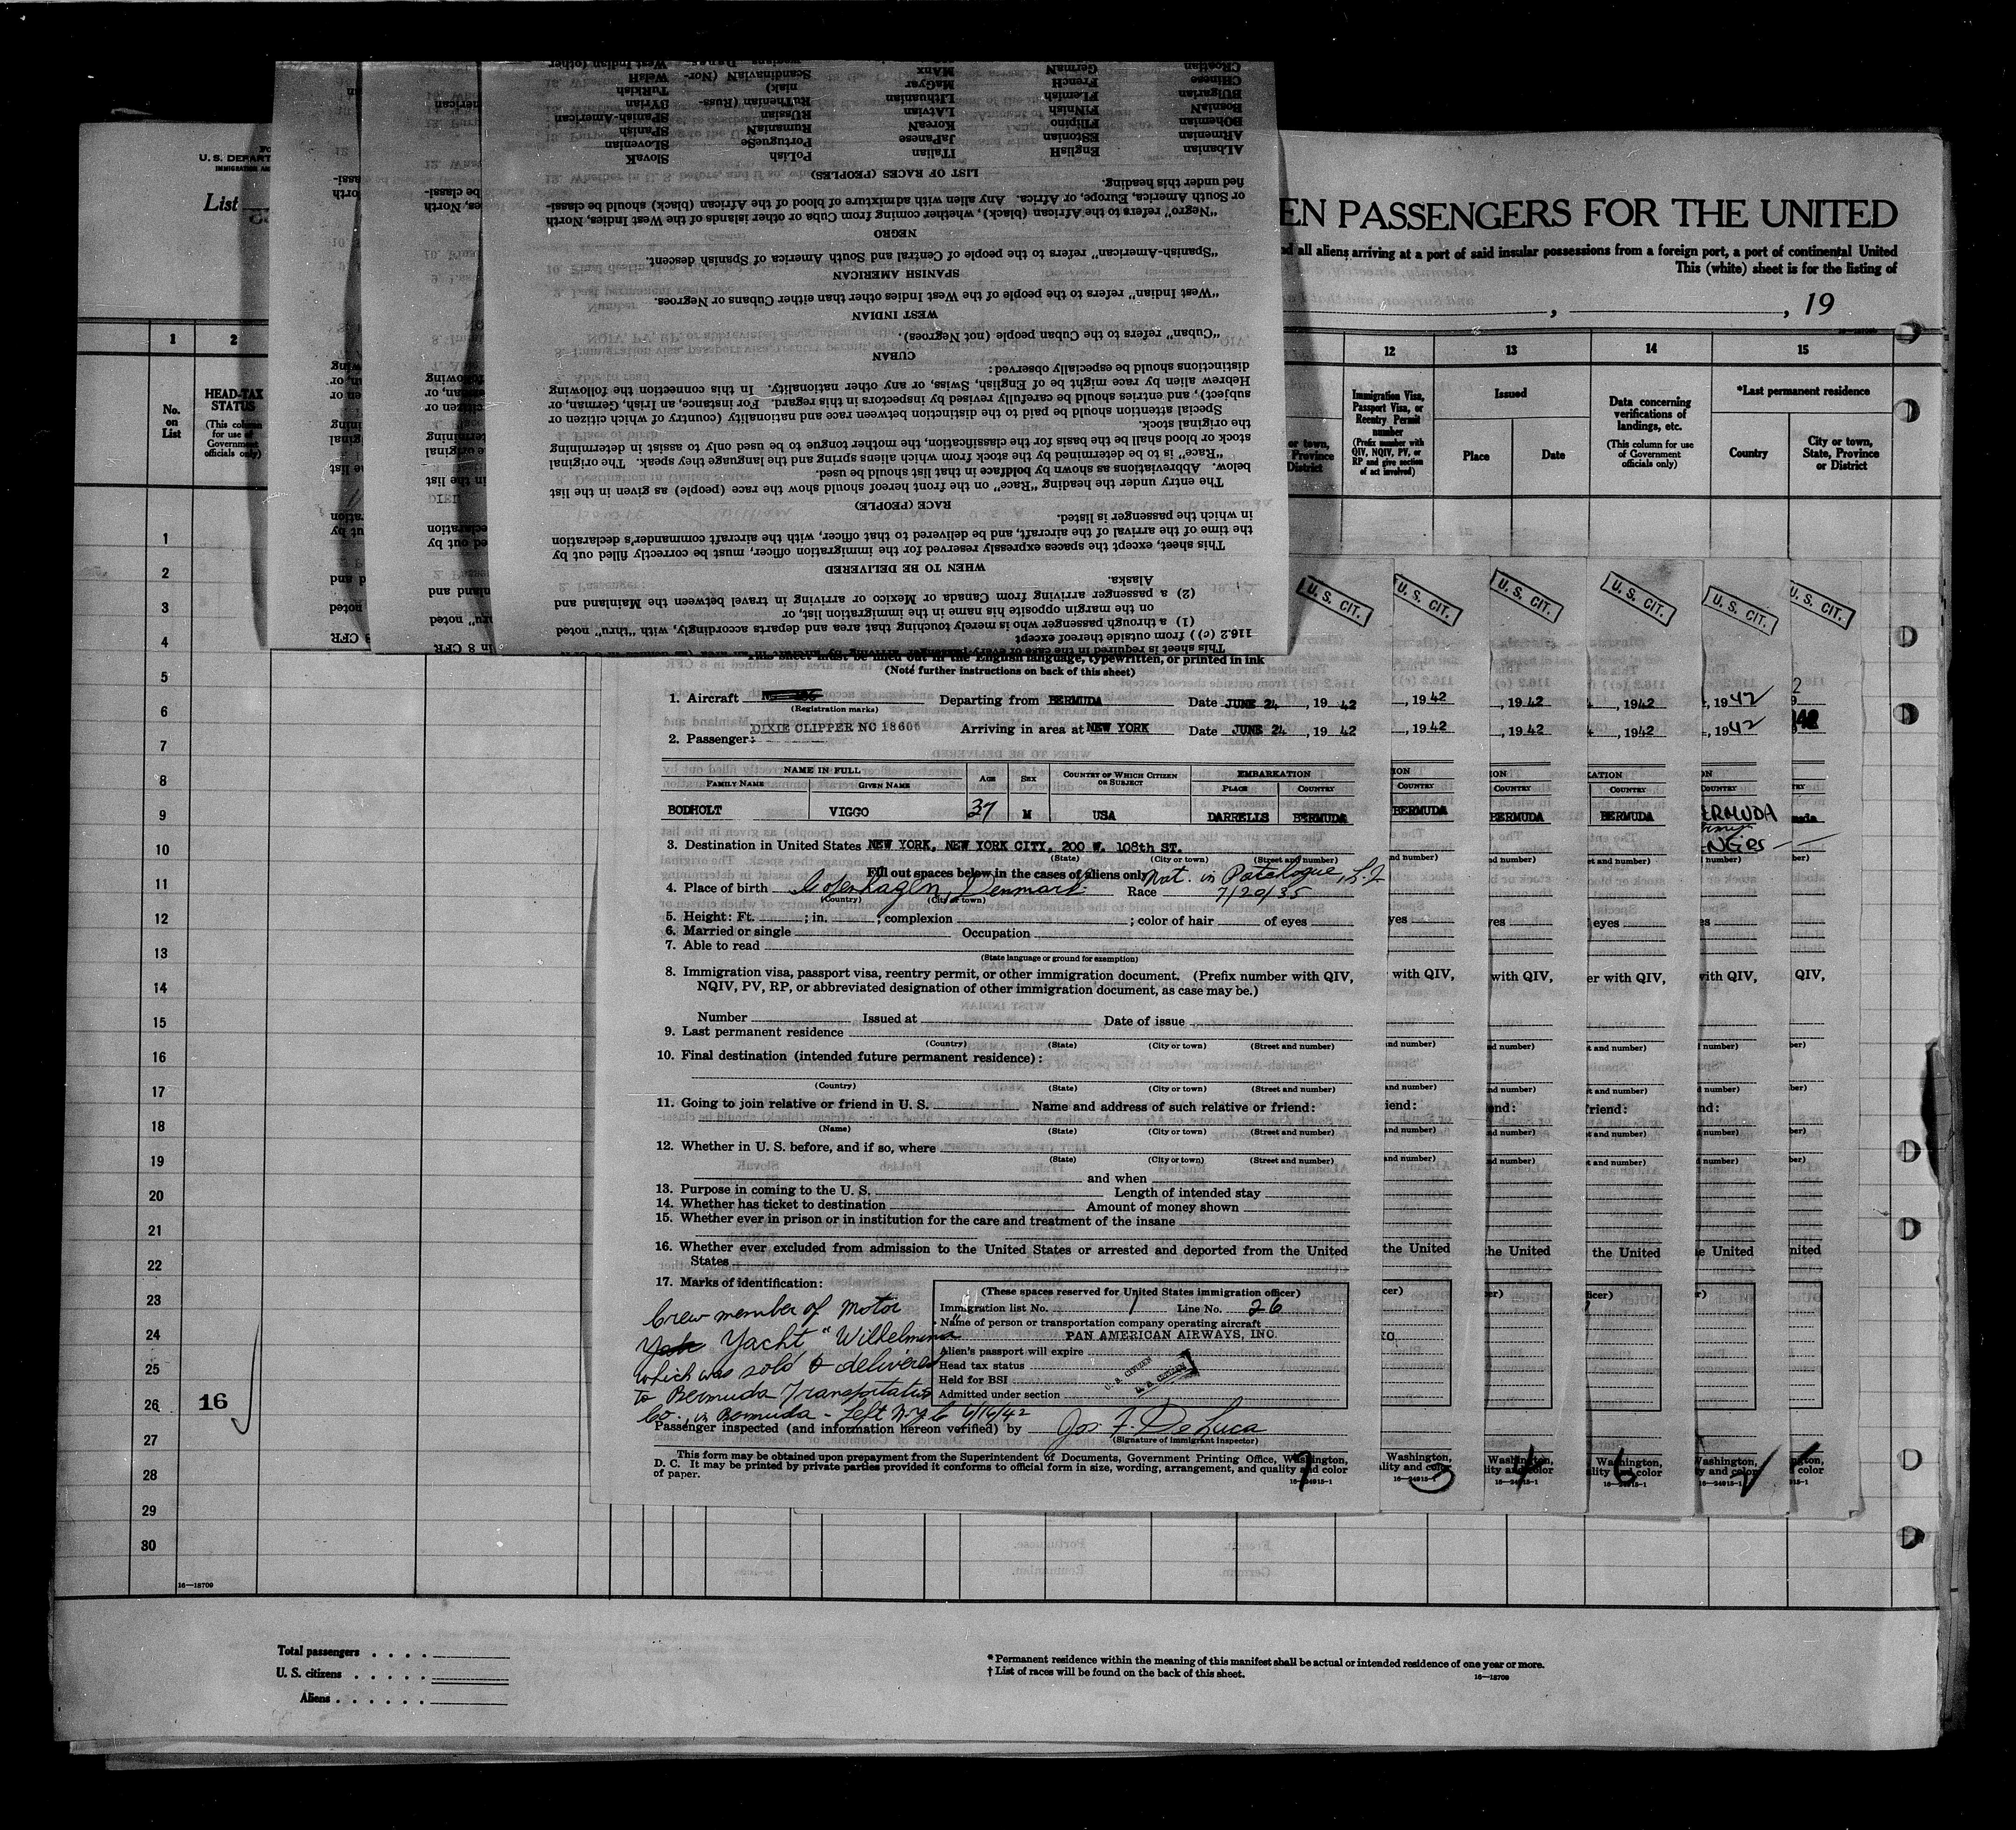 FO
U. S. DEPART
IMMIGRATION AN
List
EN PASSENGERS FOR THE UNITED
all aliens arriving at a port of said insular possessions from a foreign port, a port of continental United
This (white) sheet is for the listing of
, 19
1 2
12 13 14 15
No. on List
HEAD-TAX STATUS
(This column for use of Government officials only)
or town, Province District
Immigration Visa, Passport Visa, or Reentry Permit number
(Prefix number with QIV, NQIV, PV, or RP and give section of act involved)
Issued
Place
Date
Data concerning verifications of landings, etc.
(This column for use of Government officials only)
*Last permanent residence
Country
City or town, State, Province or District
This sheet is required in the case of every passenger arriving by aircraft in an area (as defined in 8 CFR
116.2 (c)) from outside thereof except
(1) a through passenger who is merely touching that area and departs accordingly, with "thru" noted
on the margin opposite his name in the immigration list, or
(2) a passenger arriving from Canada or Mexico or arriving in travel between the Mainland and
Alaska.
WHEN TO BE DELIVERED
This sheet, except the spaces expressly reserved for the immigration officer, must be correctly filled out by
the time of the arrival of the aircraft, and be delivered to that officer, with the aircraft commander's declaration
in which the passenger is listed.
RACE (PEOPLE)
The entry under the heading "Race" on the front hereof should show the race (people) as given in the list
below. Abbreviations as shown by boldface in that list should be used.
"Race" is to be determined by the stock from which aliens spring and the language they speak. The original
stock or blood shall be the basis for the classification, the mother tongue to be used only to assist in determining
the original stock.
Special attention should be paid to the distinction between race and nationality (country of which citizen or
subject), and entries should be carefully revised by inspectors in this regard. For instance, an Irish, German, or
Hebrew alien by race might be of English, Swiss, or any other nationality. In this connection the following
distinctions should be especially observed:
CUBAN
"Cuban" refers to the Cuban people (not Negroes).
WEST INDIAN
"West Indian" refers to the people of the West Indies other than either Cubans or Negroes.
SPANISH AMERICAN
"Spanish-American" refers to the people of Central and South America of Spanish descent.
NEGRO
"Negro" refers to the African (black), whether coming from Cuba or other islands of the West Indies, North
or South America, Europe, or Africa. Any alien with admixture of blood of the African (black) should be classi-
fied under this heading.
LIST OF RACES (PEOPLES)
ALbanian EnglisH ITalian PoLish SlovaK
ARmenian EStonian JaPanese PortugueSe SLOvenian
BOHemian FIlipino KoreaN RumaniaN SPanish
BosniaN FiNnish LAtvian RUssian SPanish-American
BUlgarian FLemish LIthuanian RuThenian (Russ- SYrian
CHinese FrencH MaGyar niak) TurKish
CRoatian GermaN MAnx ScandinaviaN (Nor- WelsH
U. S. CIT.
U. S. CIT.
U. S. CIT.
U. S. CIT.
U. S. CIT.
U. S. CIT.
(Note further instructions on back of this sheet)
1. Aircraft
(Registration marks)
Departing from BERMUDA Date JUNE 24, 19 42
DIXIE CLIPPER NC 18606
Arriving in area at NEW YORK Date JUNE 24, 19 42
2. Passenger:
NAME IN FULL
FAMILY NAME GIVEN NAME
AGE SEX COUNTRY OF WHICH CITIZEN OR SUBJECT
EMBARKATION
PLACE COUNTRY
BODHOLT VIGGO 37 M USA DARRELLS BERMUDA
3. Destination in United States NEW YORK, NEW YORK CITY, 200 W. 108th ST.
(State) (City or town) (Street and number)
Fill out spaces below in the cases of aliens only
Nat. in Patchogue, L.I.
4. Place of birth Copenhagen, Denmark Race 7/20/35
(Country) (City or town)
5. Height: Ft. ; in. ; complexion ; color of hair of eyes
6. Married or single Occupation
7. Able to read
(State language or ground for exemption)
8. Immigration visa, passport visa, reentry permit, or other immigration document. (Prefix number with QIV,
NQIV, PV, RP, or abbreviated designation of other immigration document, as case may be.)
Number Issued at Date of issue
9. Last permanent residence
(Country) (State) (City or town) (Street and number)
10. Final destination (intended future permanent residence):
(Country) (State) (City or town) (Street and number)
11. Going to join relative or friend in U. S. Name and address of such relative or friend:
(Name) (State) (City or town) (Street and number)
12. Whether in U. S. before, and if so, where
(State) (City or town) (Street and number)
and when
13. Purpose in coming to the U. S. Length of intended stay
14. Whether has ticket to destination Amount of money shown
15. Whether ever in prison or in institution for the care and treatment of the insane
16. Whether ever excluded from admission to the United States or arrested and deported from the United
States
17. Marks of identification:
Crew member of Motor
Yacht "Wilhelmina"
which was sold & delivered
to Bermuda Transportation
Co., in Bermuda - Left N.Y.C 6/16/42
(These spaces reserved for United States immigration officer)
Immigration list No. 1 Line No. 26
Name of person or transportation company operating aircraft
PAN AMERICAN AIRWAYS, INC.
Alien's passport will expire
Head tax status
Held for BSI
Admitted under section
U. S. CITIZEN
U. S. CITIZEN
Passenger inspected (and information hereon verified) by Jos. F. De Luca
(Signature of immigrant inspector)
This form may be obtained upon prepayment from the Superintendent of Documents, Government Printing Office, Washington,
D. C. It may be printed by private parties provided it conforms to official form in size, wording, arrangement, and quality and color
of paper.
16—24915-1
1
2
3
4
5
6
7
8
9
10
11
12
13
14
15
16
17
18
19
20
21
22
23
24
25
26 16
27
28
29
30
16—18709
Total passengers
U. S. citizens
Aliens
* Permanent residence within the meaning of this manifest shall be actual or intended residence of one year or more.
† List of races will be found on the back of this sheet.
16—18709